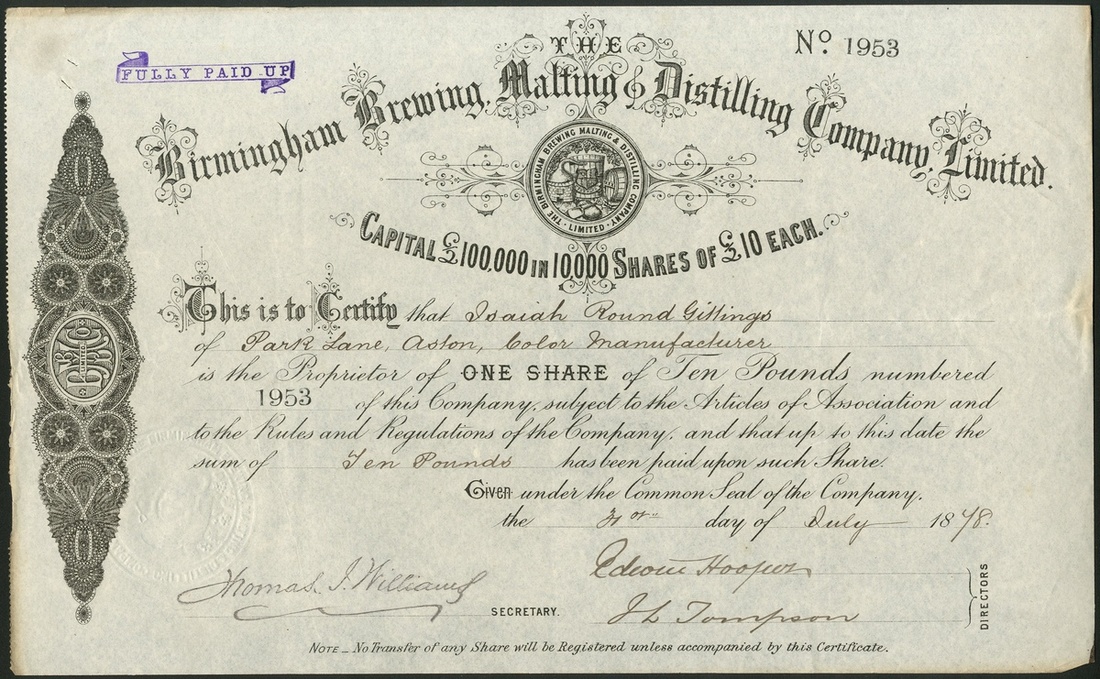 THE
Nº 1953
FULLY PAID UP
Birmingham Brewing, Malting & Distilling Company, Limited.
THE BIRMINGHAM BREWING MALTING & DISTILLING COMPANY · LIMITED ·
CAPITAL £100,000 IN 10,000 SHARES OF £10 EACH.
This is to Certify that Isaiah Round Gittings
of Park Lane, Aston, Color Manufacturer
is the Proprietor of ONE SHARE of Ten Pounds numbered
1953 of this Company, subject to the Articles of Association and
to the Rules and Regulations of the Company, and that up to this date the
sum of Ten Pounds has been paid upon such Share.
Given under the Common Seal of the Company,
the day of July 1878.
Thomas J. Williams SECRETARY.
Edwin Hooper
J L Tompson
DIRECTORS
NOTE _ No Transfer of any Share will be Registered unless accompanied by this Certificate.